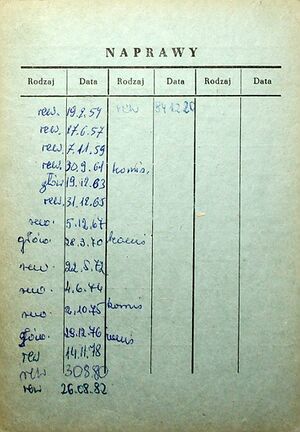 NAPRAWY
Rodzaj Data Rodzaj Data Rodzaj Data
rew. 19.2.57 rew 84.12.20
rew. 17.6.57
rew. 7.11.59
rew. 30.9.61 komis.
głów 19.12.63
rew. 31.12.65
rew. 5.12.67
głów. 28.3.70 komis
rew. 22.5.72
rew. 4.6.74
rew. 2.10.75 komis
głów. 29.12.76 komis
rew 14.11.78
rew 30.8.80
rew 26.08.82